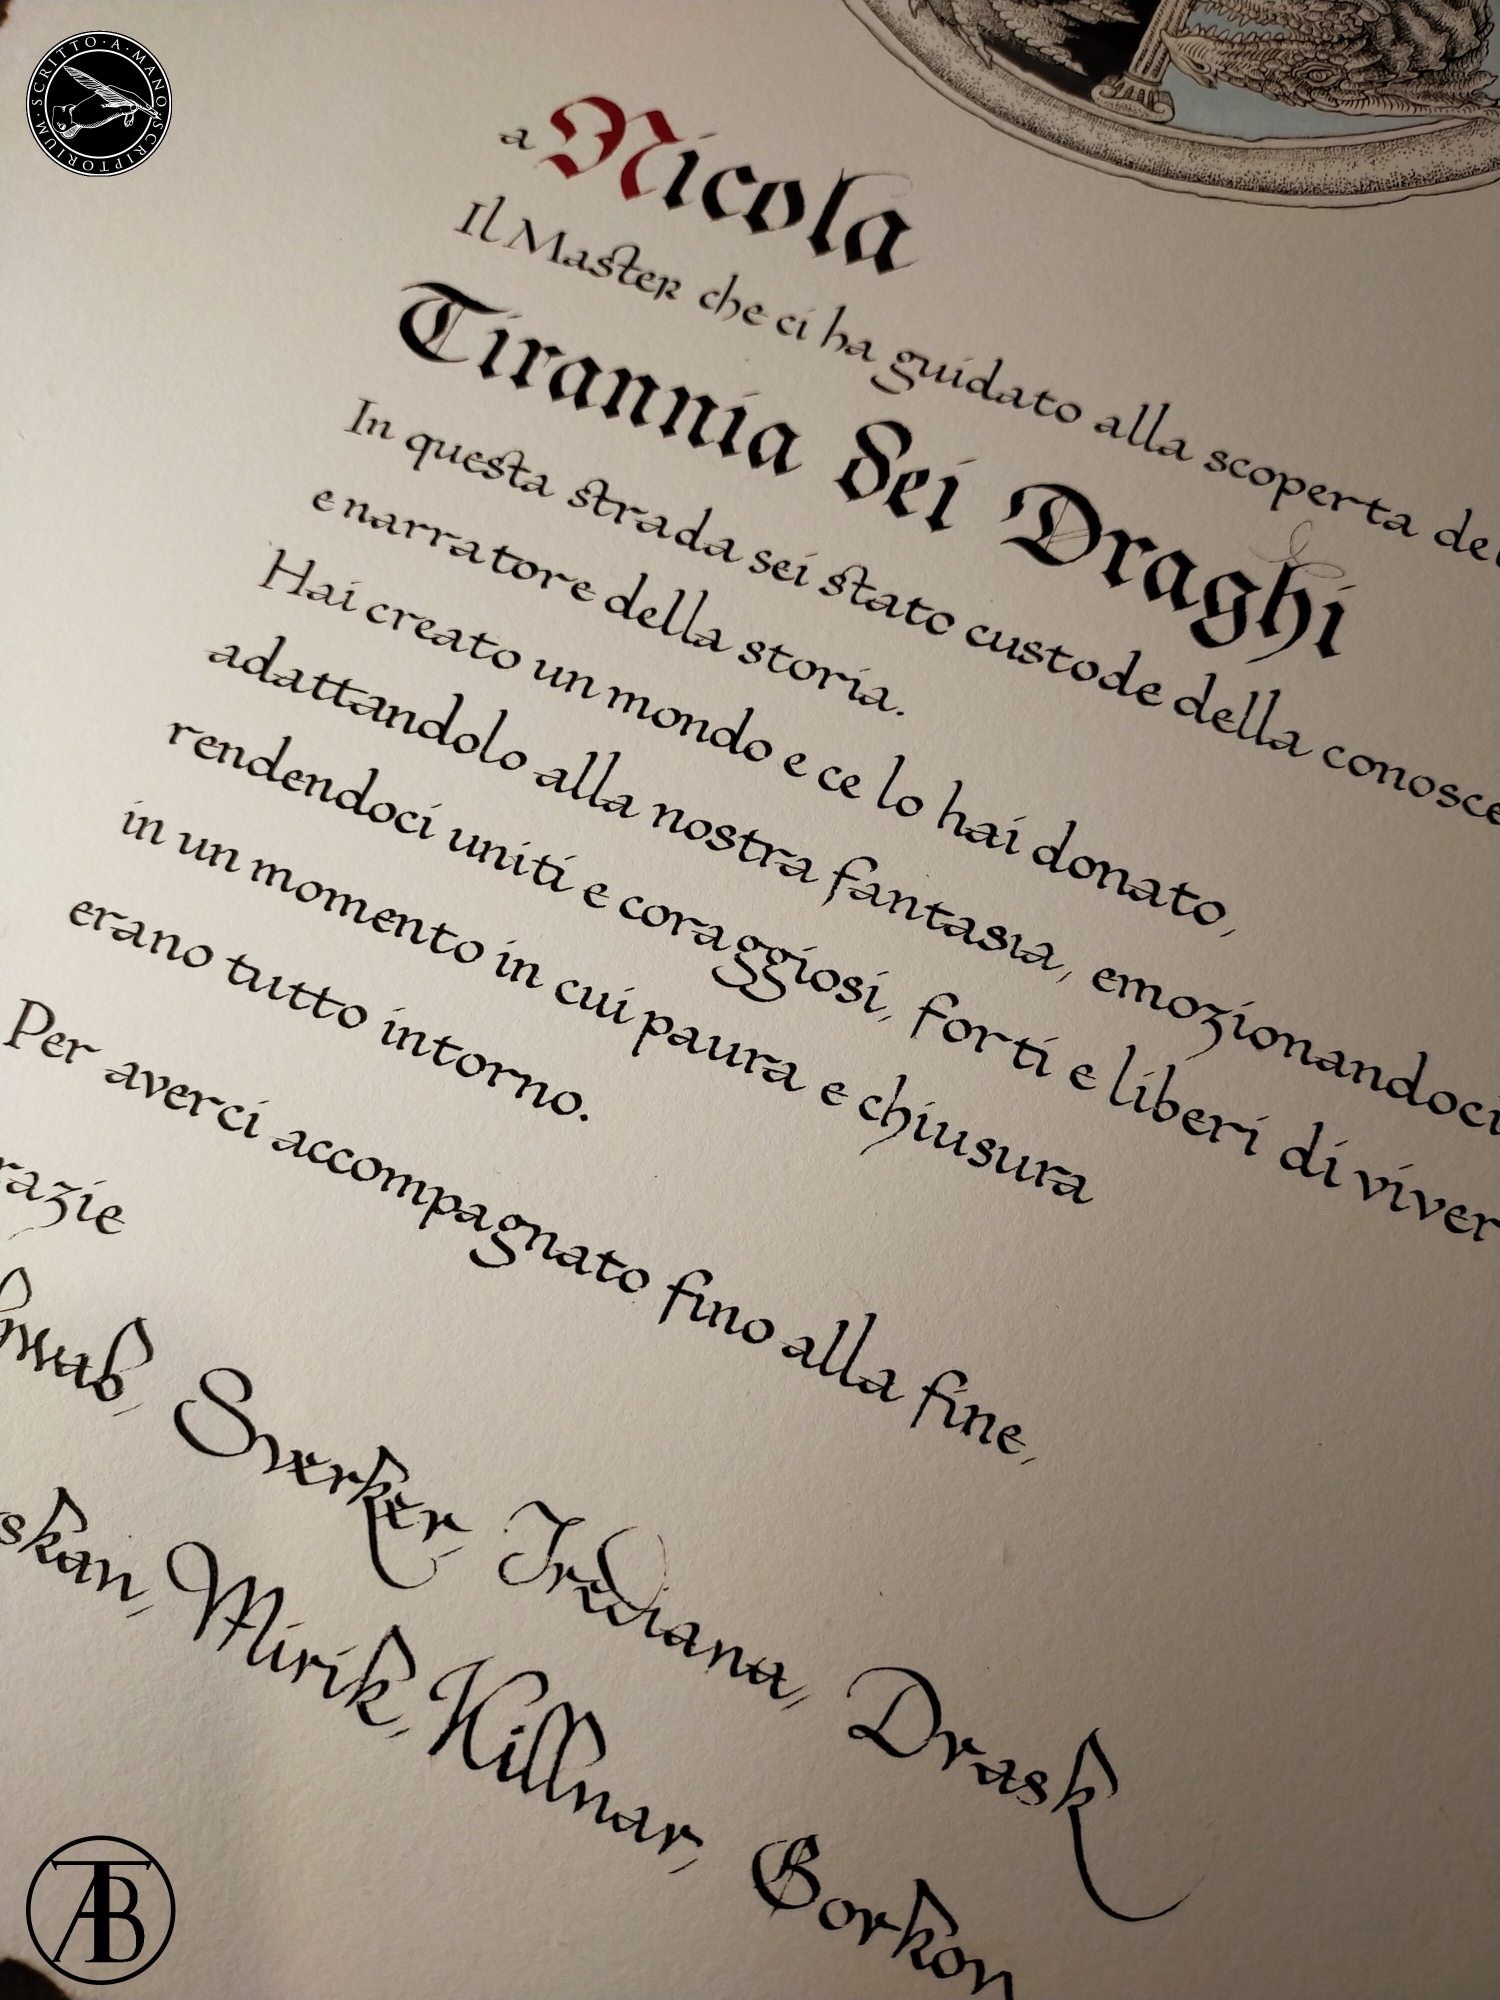 SCRITTO · A · MANO · SCRIPTORIUM
a Nicola
Il Master che ci ha guidato alla scoperta
Tirannia dei Draghi
In questa strada sei stato custode della
e narratore della storia.
Hai creato un mondo e ce lo hai donato,
adattandolo alla nostra fantasia, emozionandoci
rendendoci uniti e coraggiosi, forti e liberi di
in un momento in cui paura e chiusura
erano tutto intorno.
Per averci accompagnato fino alla fine,
Sverker, Irediana, Drask
Mirik, Killnar, Borkon